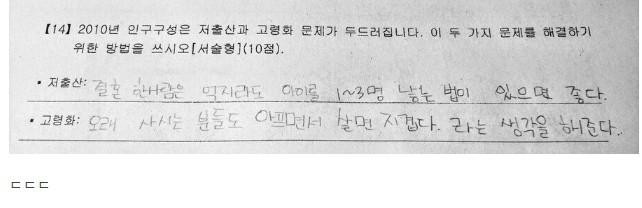 【14】 2010년 인구구성은 저출산과 고령화 문제가 두드러집니다. 이 두 가지 문제를 해결하기
위한 방법을 쓰시오[서술형](10점).
• 저출산: 결혼 한사람은 억지라도 아이를 1~3명 낳는 법이 있으면 좋다.
• 고령화: 오래 사시는 분들도 아프면서 살면 지겹다. 라는 생각을 해준다.
ㄷㄷㄷ